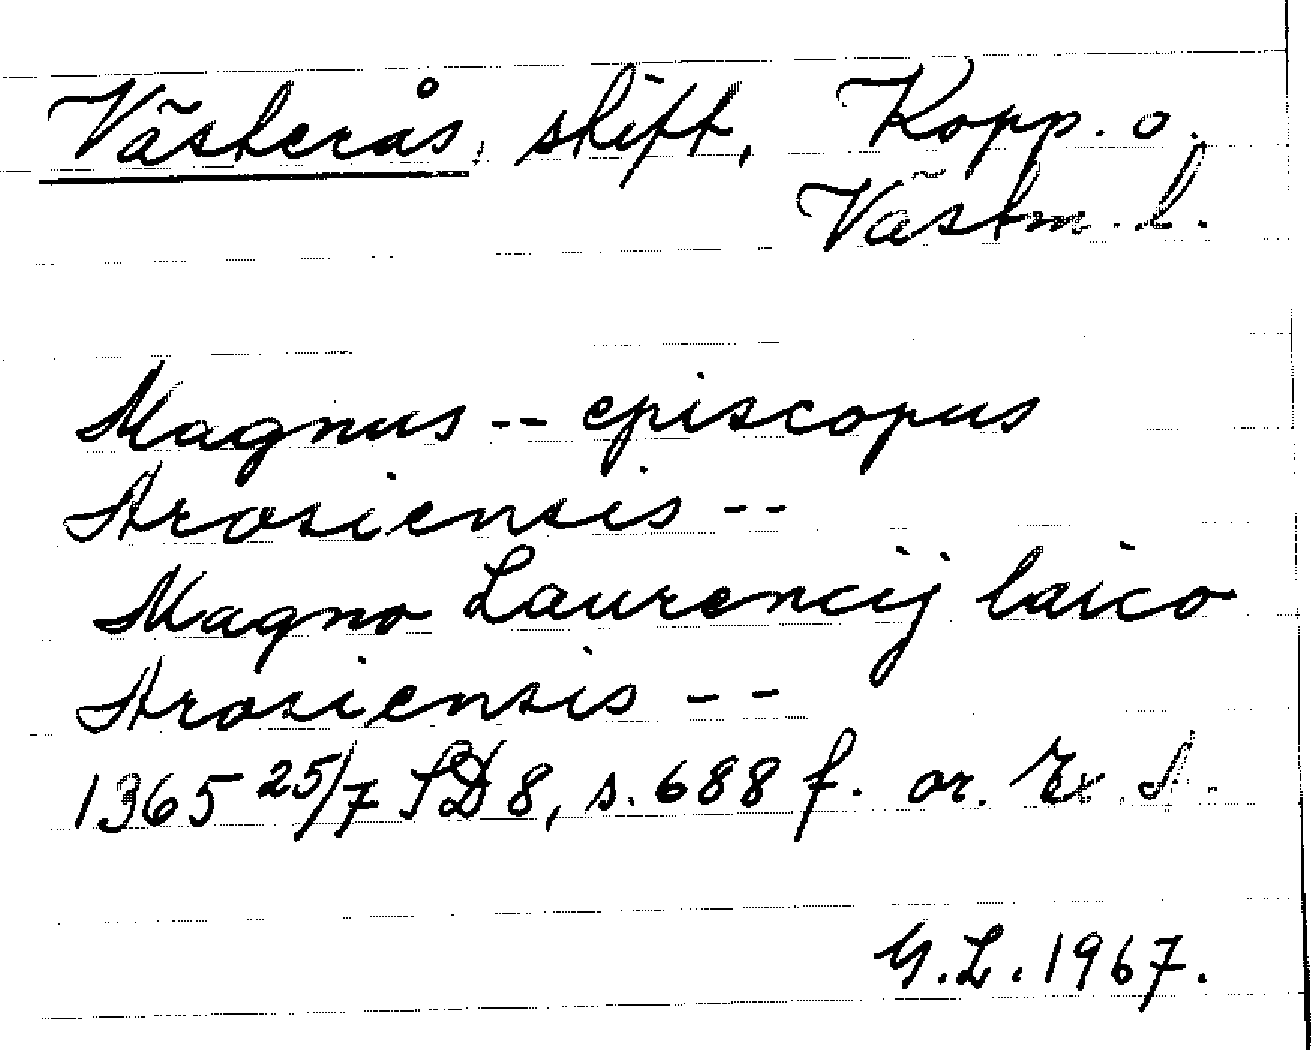 Västerås, stift, Kopp. o.
Västm. l.
Magnus -- episcopus
Arosiensis --
Magno Laurencij laico
Arosiensis --
1365 25/7 SD 8, s. 688 f. or.
G.L. 1967.